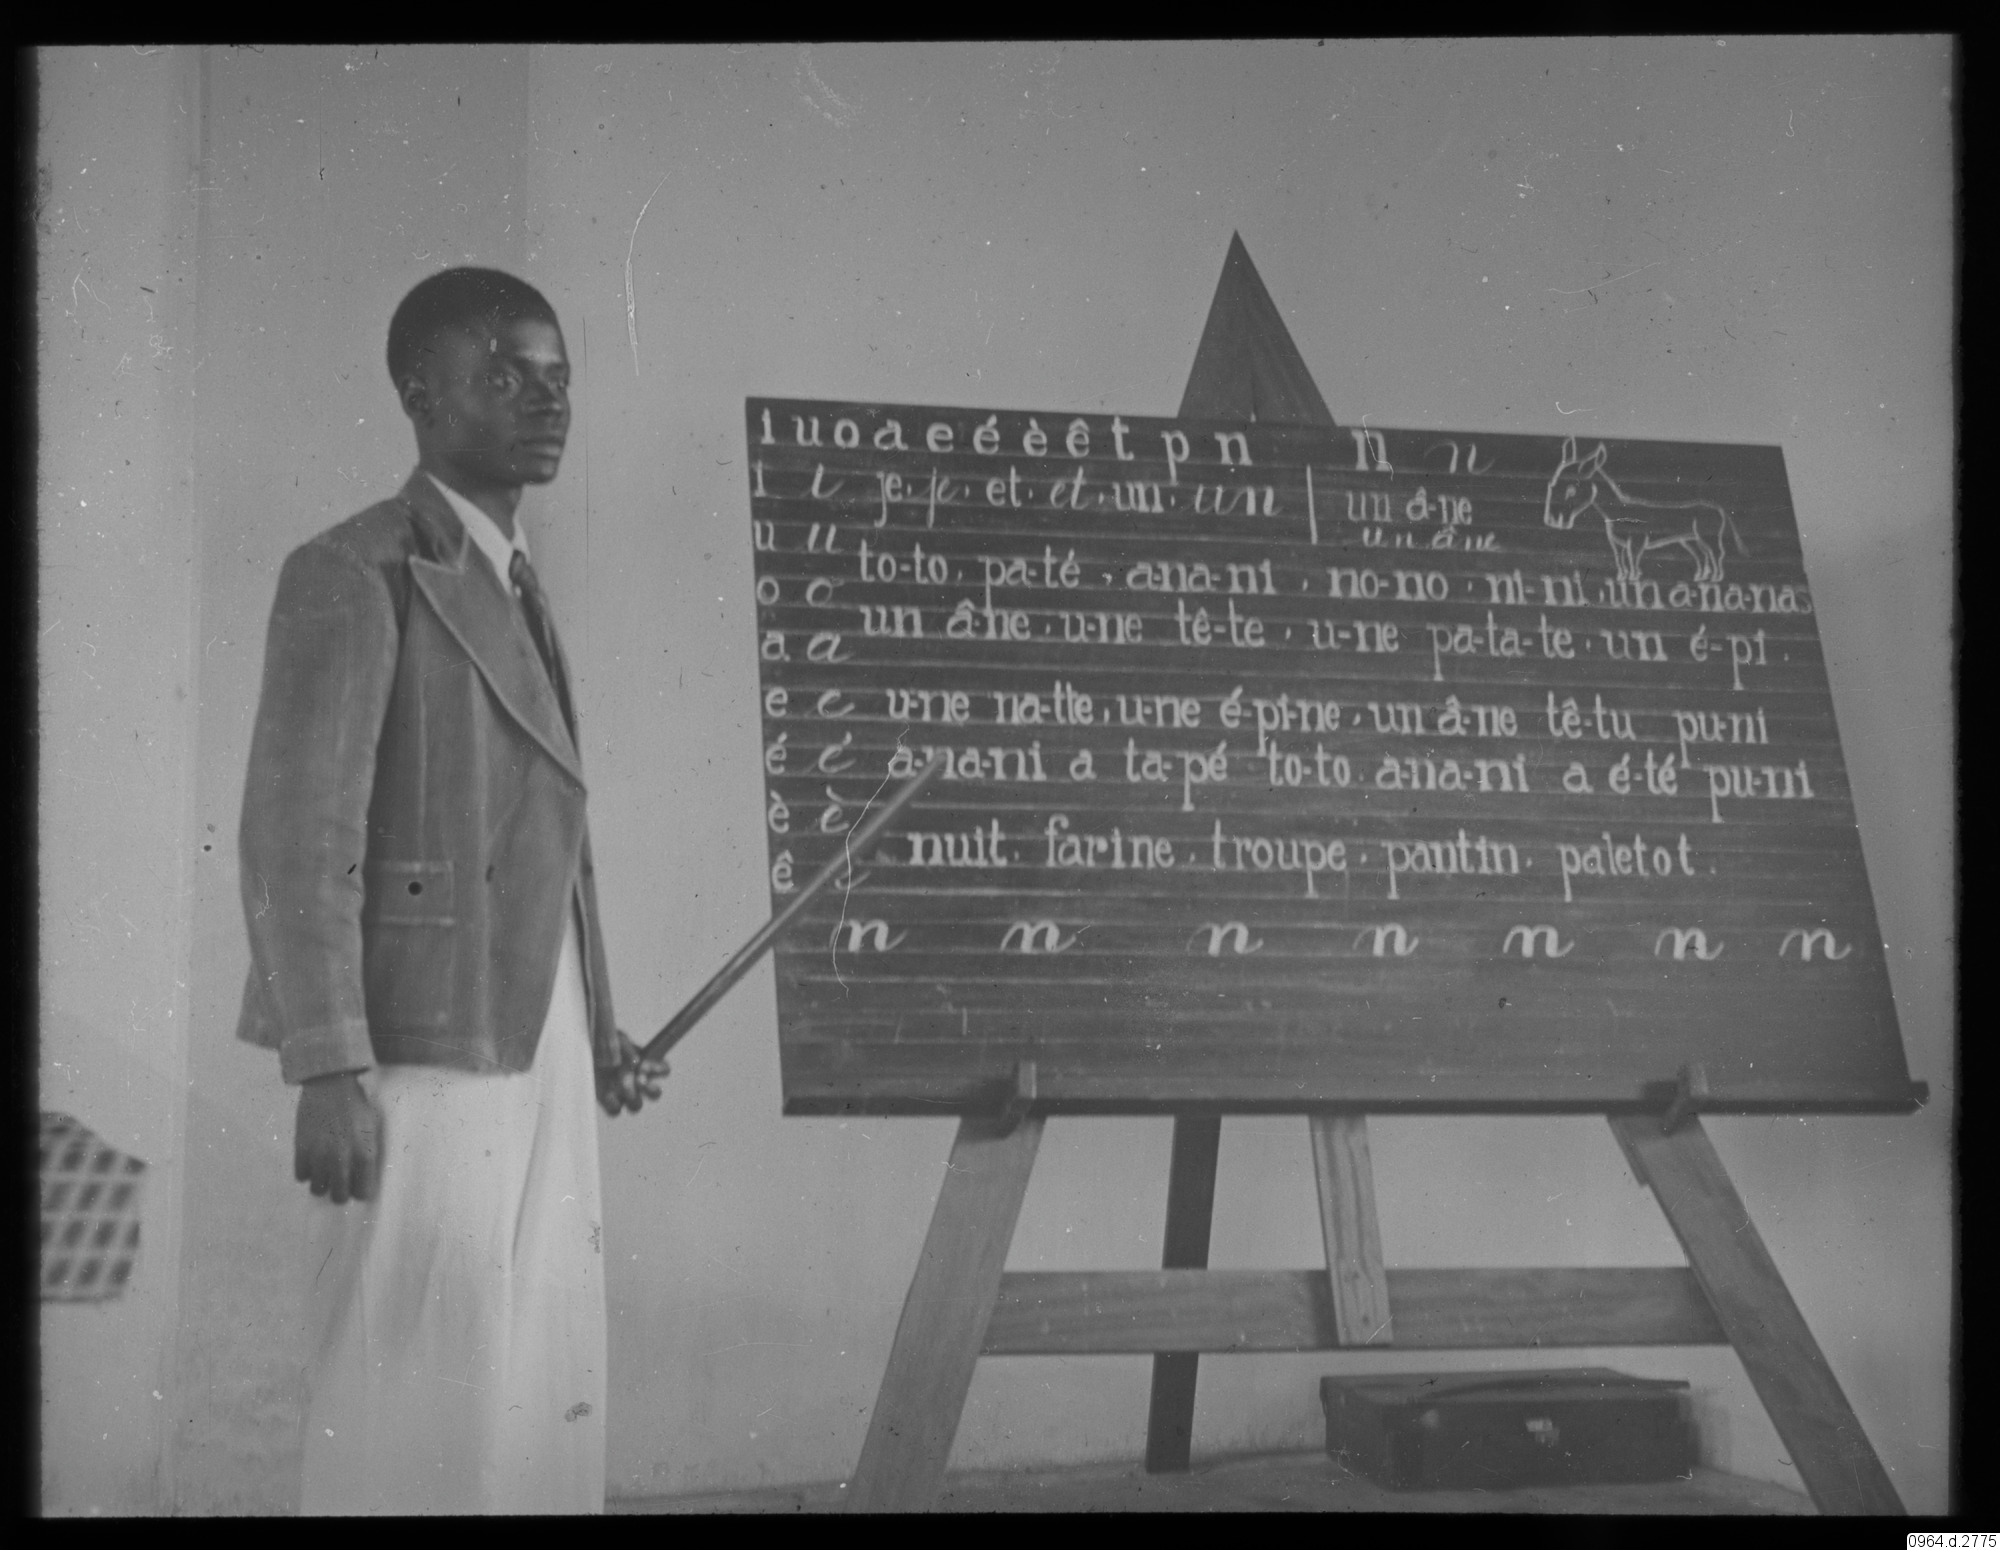 i u o a e é è ê t p n n n
i i je. je. et. et. un. un | un â-ne
u u un âne
to-to. pa-té. a-na-ni. no-no. ni-ni. un a-na-nas
o o un â-ne. u-ne tê-te. u-ne pa-ta-te. un é-pi.
a a
e e u-ne na-tte. u-ne é-pi-ne. un â-ne tê-tu pu-ni
é é a-na-ni a ta-pé to-to. a-na-ni a é-té pu-ni
è è
nuit. farine. troupe. pantin. paletot.
ê
n n n n n n n
0964.d.2775